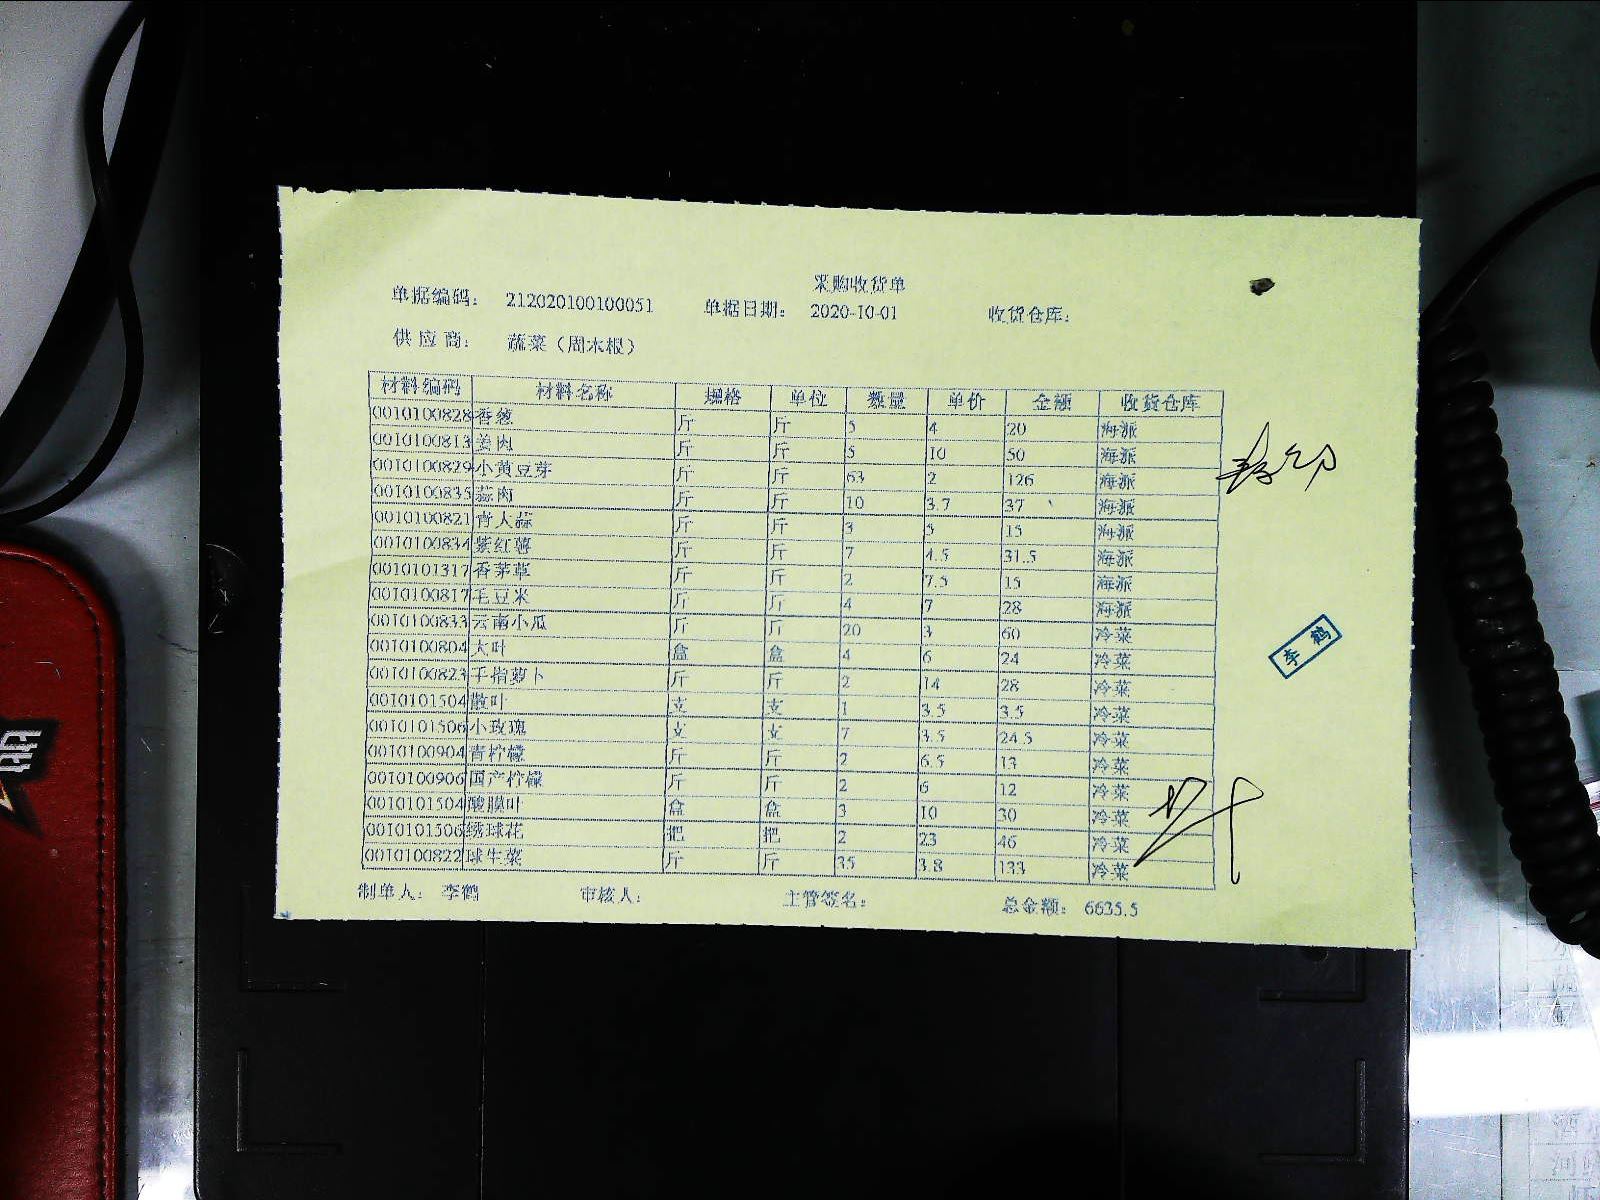 采购收货单
单据编码： 212020100100051 单据日期： 2020-10-01 收货仓库：
供应商： 蔬菜（周木根）
材料编码 材料名称 规格 单位 数量 单价 金额 收货仓库
0010100828 香葱 斤 斤 5 4 20 海派
0010100813 姜肉 斤 斤 5 10 50 海派
0010100829 小黄豆芽 斤 斤 63 2 126 海派
0010100835 蒜肉 斤 斤 10 3.7 37 海派
0010100821 青大蒜 斤 斤 3 5 15 海派
0010100834 紫红薯 斤 斤 7 4.5 31.5 海派
0010101317 香茅草 斤 斤 2 7.5 15 海派
0010100817 毛豆米 斤 斤 4 7 28 海派
0010100833 云南小瓜 斤 斤 20 3 60 冷菜
0010100804 大叶 盒 盒 4 6 24 冷菜
0010100823 手指萝卜 斤 斤 2 14 28 冷菜
0010101504 散叶 支 支 1 3.5 3.5 冷菜
0010101506 小玫瑰 支 支 7 3.5 24.5 冷菜
0010100904 青柠檬 斤 斤 2 6.5 13 冷菜
0010100906 国产柠檬 斤 斤 2 6 12 冷菜
0010101504 酸膜叶 盒 盒 3 10 30 冷菜
0010101506 绣球花 把 把 2 23 46 冷菜
0010100822 球生菜 斤 斤 35 3.8 133 冷菜
制单人： 李鹤 审核人： 主管签名： 总金额： 6635.5
李鹤